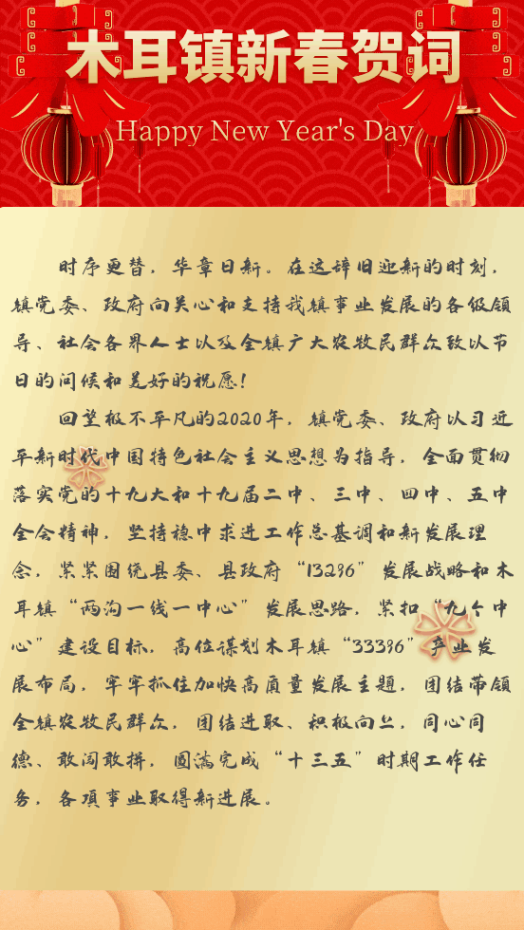 木耳镇新春贺词
Happy New Year's Day
时序更替，华章日新。在这辞旧迎新的时刻，
镇党委、政府向关心和支持我镇事业发展的各级领
导、社会各界人士以及全镇广大农牧民群众致以节
日的问候和美好的祝愿！
回望极不平凡的2020年，镇党委、政府以习近
平新时代中国特色社会主义思想为指导，全面贯彻
落实党的十九大和十九届二中、三中、四中、五中
全会精神，坚持稳中求进工作总基调和新发展理
念，紧紧围绕县委、县政府“13296”发展战略和木
耳镇“两沟一线一中心”发展思路，紧扣“九个中
心”建设目标，高位谋划木耳镇“33396”产业发
展布局，牢牢抓住加快高质量发展主题，团结带领
全镇农牧民群众，团结进取、积极向上，同心同
德、敢闯敢拼，圆满完成“十三五”时期工作任
务，各项事业取得新进展。